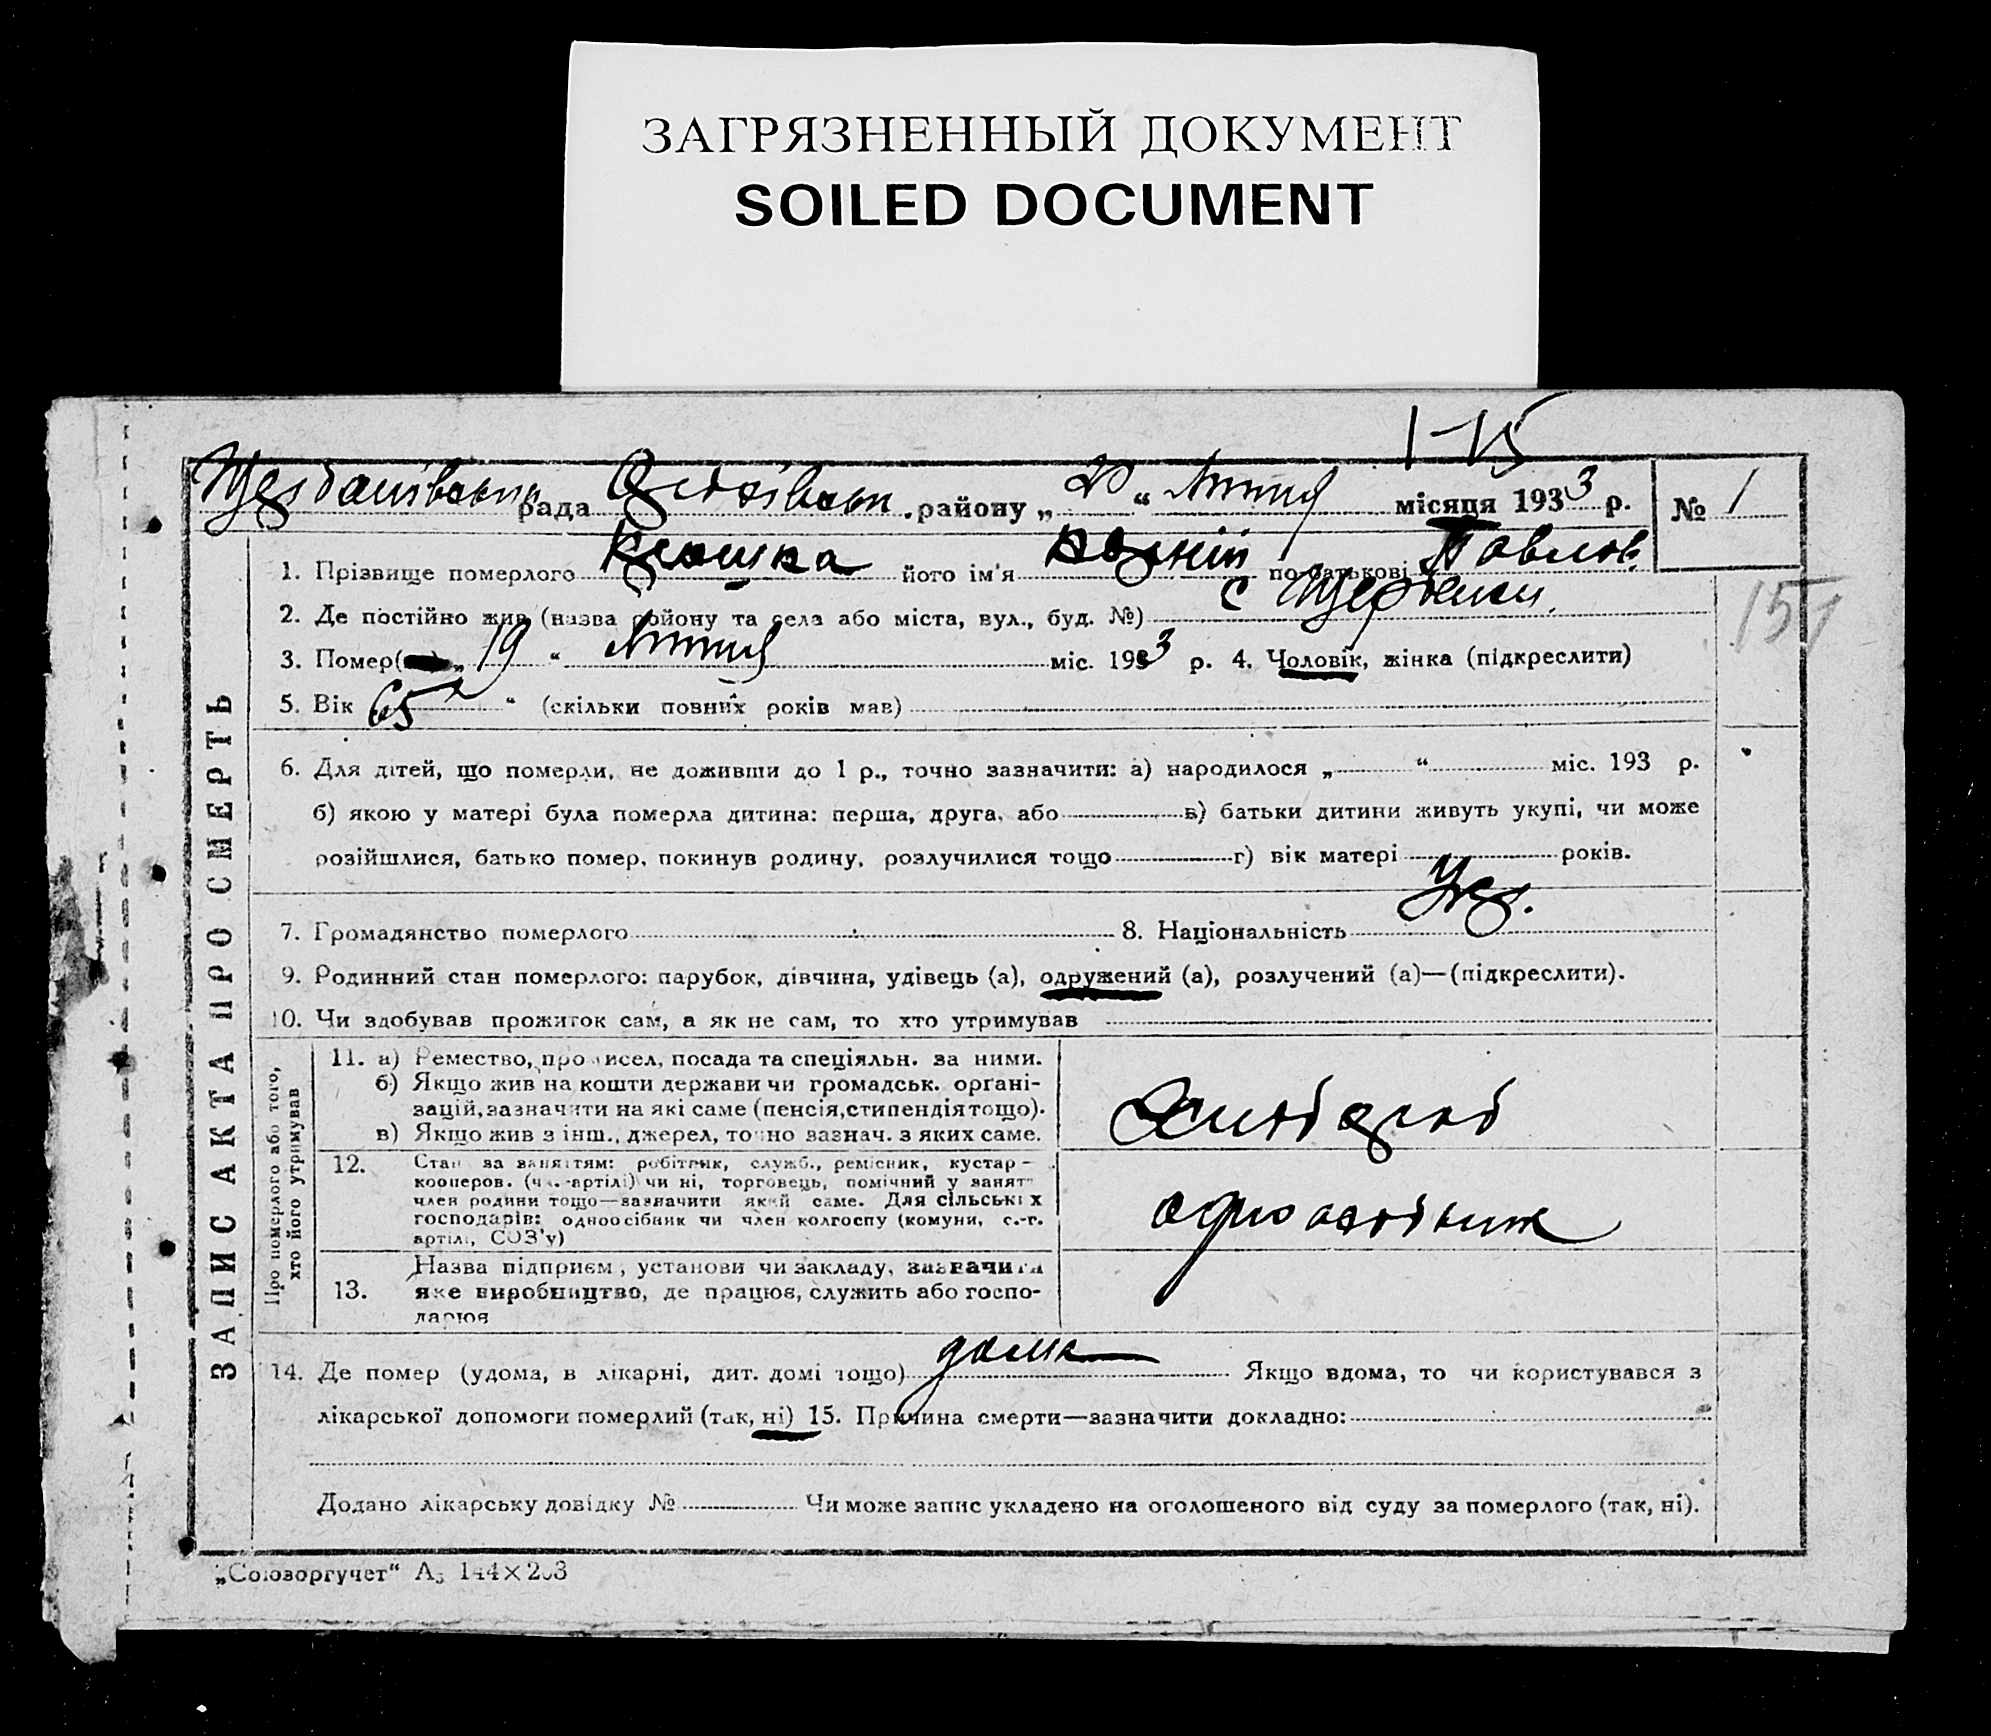 ЗАГРЯЗНЕННЫЙ ДОКУМЕНТ
SOILED DOCUMENT
1-15
рада району „ “ місяця 1933 р. № 1
1. Прізвище померлого його ім'я по батькові Павлов.
151
2. Де постійно жив (назва району та села або міста, вул., буд. №) с
3. Помер „ 19 “ міс. 1933 р. 4. Чоловік, жінка (підкреслити)
5. Вік 65 “ (скільки повних років мав)
6. Для дітей, що померли, не доживши до 1 р., точно зазначити: а) народилося „ “ міс. 193 р.
б) якою у матері була померла дитина: перша, друга, або в) батьки дитини живуть укупі, чи може
розійшлися, батько помер, покинув родину, розлучилися тощо г) вік матері років.
7. Громадянство померлого 8. Національність Укр.
9. Родинний стан померлого: парубок, дівчина, удівець (а), одружений (а), розлучений (а)—(підкреслити).
10. Чи здобував прожиток сам, а як не сам, то хто утримував
ЗАПИС АКТА ПРО СМЕРТЬ
Про померлого або того,
хто його утримував
11. а) Ремество, промисел, посада та спеціяльн. за ними.
б) Якщо жив на кошти держави чи громадськ. органі-
зацій, зазначити на які саме (пенсія, стипендія тощо).
в) Якщо жив з інш., джерел, точно зазнач. з яких саме.
Хлібороб
12. Стан за заняттям: робітник, служб., ремісник, кустар-
кооперов. (ч. артілі) чи ні, торговець, помічний у занятт
член родини тощо—зазначити який саме. Для сільських
господарів: одноосібник чи член колгоспу (комуни, с.-г.
артілі, СОЗ'у)
одноосібник
13. Назва підприєм., установи чи закладу, зазначити
яке виробництво, де працює, служить або госпо-
дарює
14. Де помер (удома, в лікарні, дит. домі тощо) дома Якщо вдома, то чи користувався з
лікарської допомоги померлий (так, ні) 15. Причина смерти—зазначити докладно:
Додано лікарську довідку № Чи може запис укладено на оголошеного від суду за померлого (так, ні).
„Союзоргучет“ А5 144×203